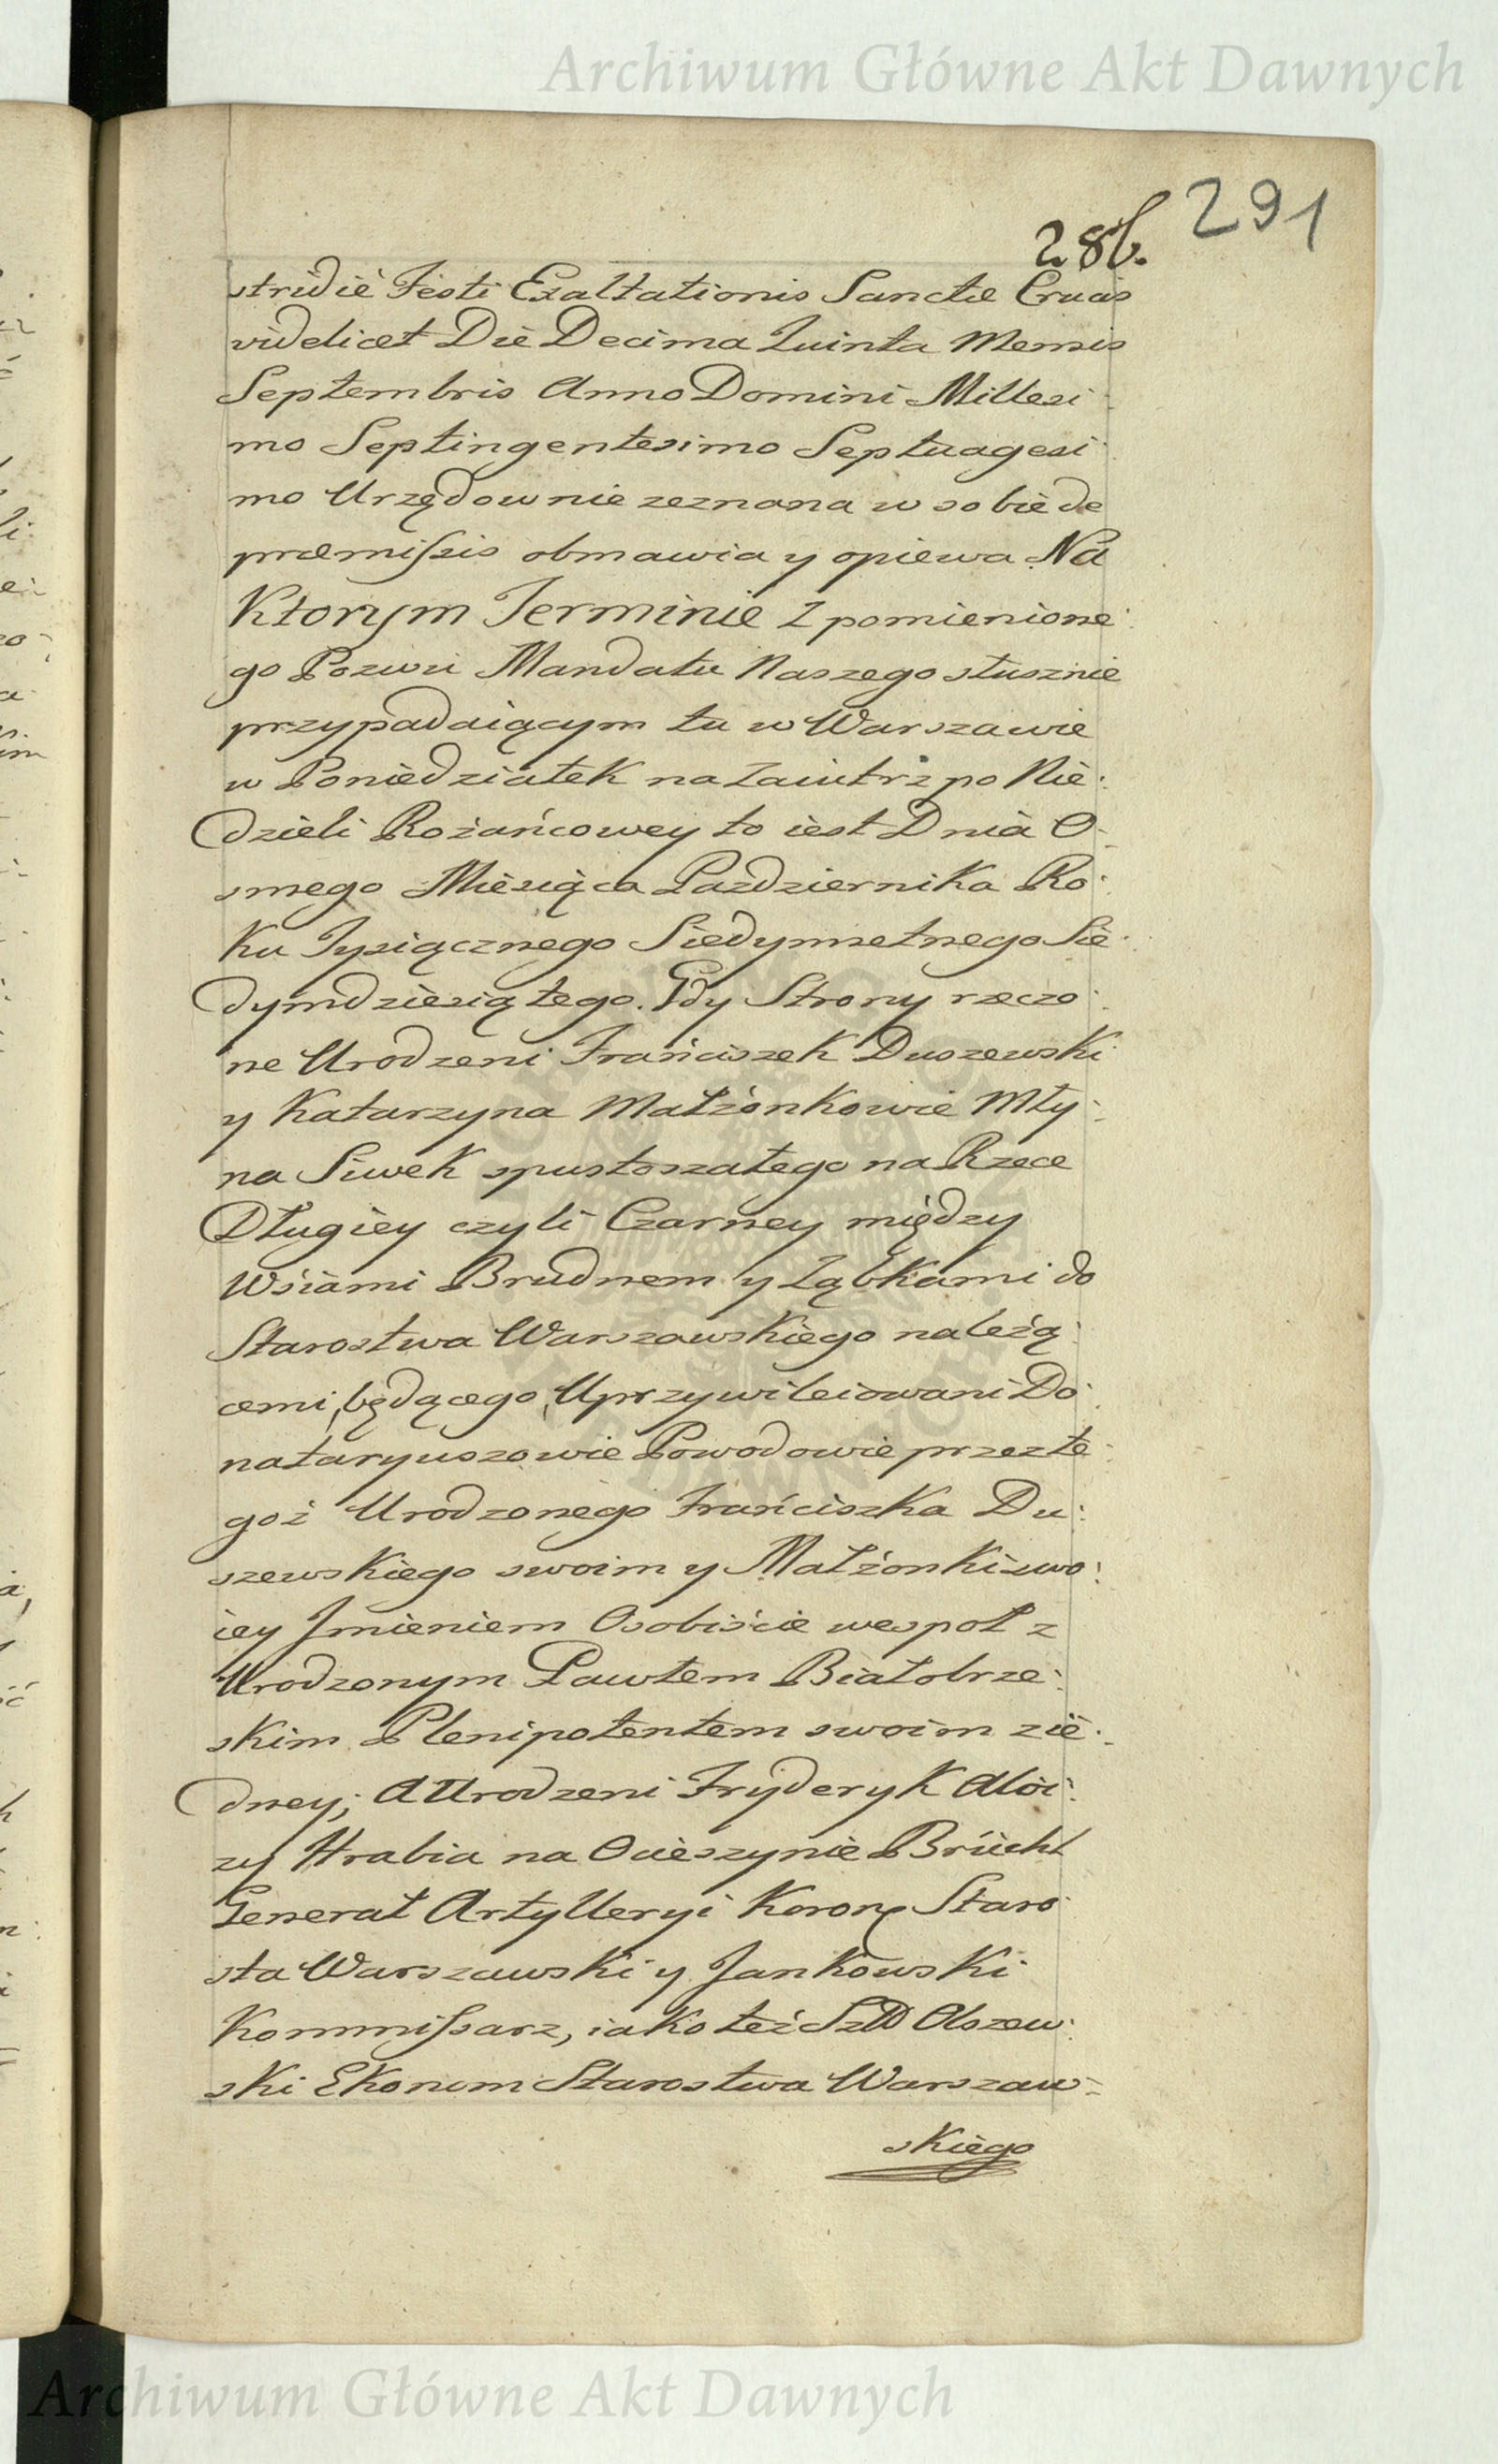 Archiwum Główne Akt Dawnych
291
286.
stridie Festi Exaltationis Sanctæ Crucis
videlicet Die Decima Quinta Mensis
Septembris Anno Domini Millesi-
mo Septingentesimo Septuagesi-
mo Urzędownie zeznana w sobie de
præmissis obmawia y opiewa. Na
Ktorym Terminie z pomienione-
go Pozwu Mandatu Naszego słusznie
przypadaiącym tu w Warszawie
w Poniedziałek nazaiutrz po Nie-
dzieli Rożańcowey to iest Dnia O-
smego Miesiąca Pazdziernika Ro-
ku Tysiącznego Siedymsetnego Sie-
dymdziesiątego. Gdy Strony rzeczo-
ne Urodzeni Franciszek Duszewski
y Katarzyna Małżonkowie Mły-
na Siwek spustoszałego na Rzece
Długiey czyli Czarney między
Wsiami Brudnem y Ząbkami do
Starostwa Warszawskiego należą-
cemi, będącego, Uprzywileiowani Do-
nataryuszowie Powodowie przez te-
goż Urodzonego Franciszka Du-
szewskiego swoim y Małżonki swo-
iey Imieniem Osobiście wespoł z
Urodzonym Pawłem Białobrze-
skim Plenipotentem swoim z ie-
dney; A Urodzeni Fryderyk Aloi-
zy Hrabia na Ocieszynie Brüchl
Generał Artylleryi Koron Staro-
sta Warszawski y Jankowski
Kommissarz, iako też Olszew-
ski Ekonom Starostwa Warszaw-
skiego
Archiwum Główne Akt Dawnych